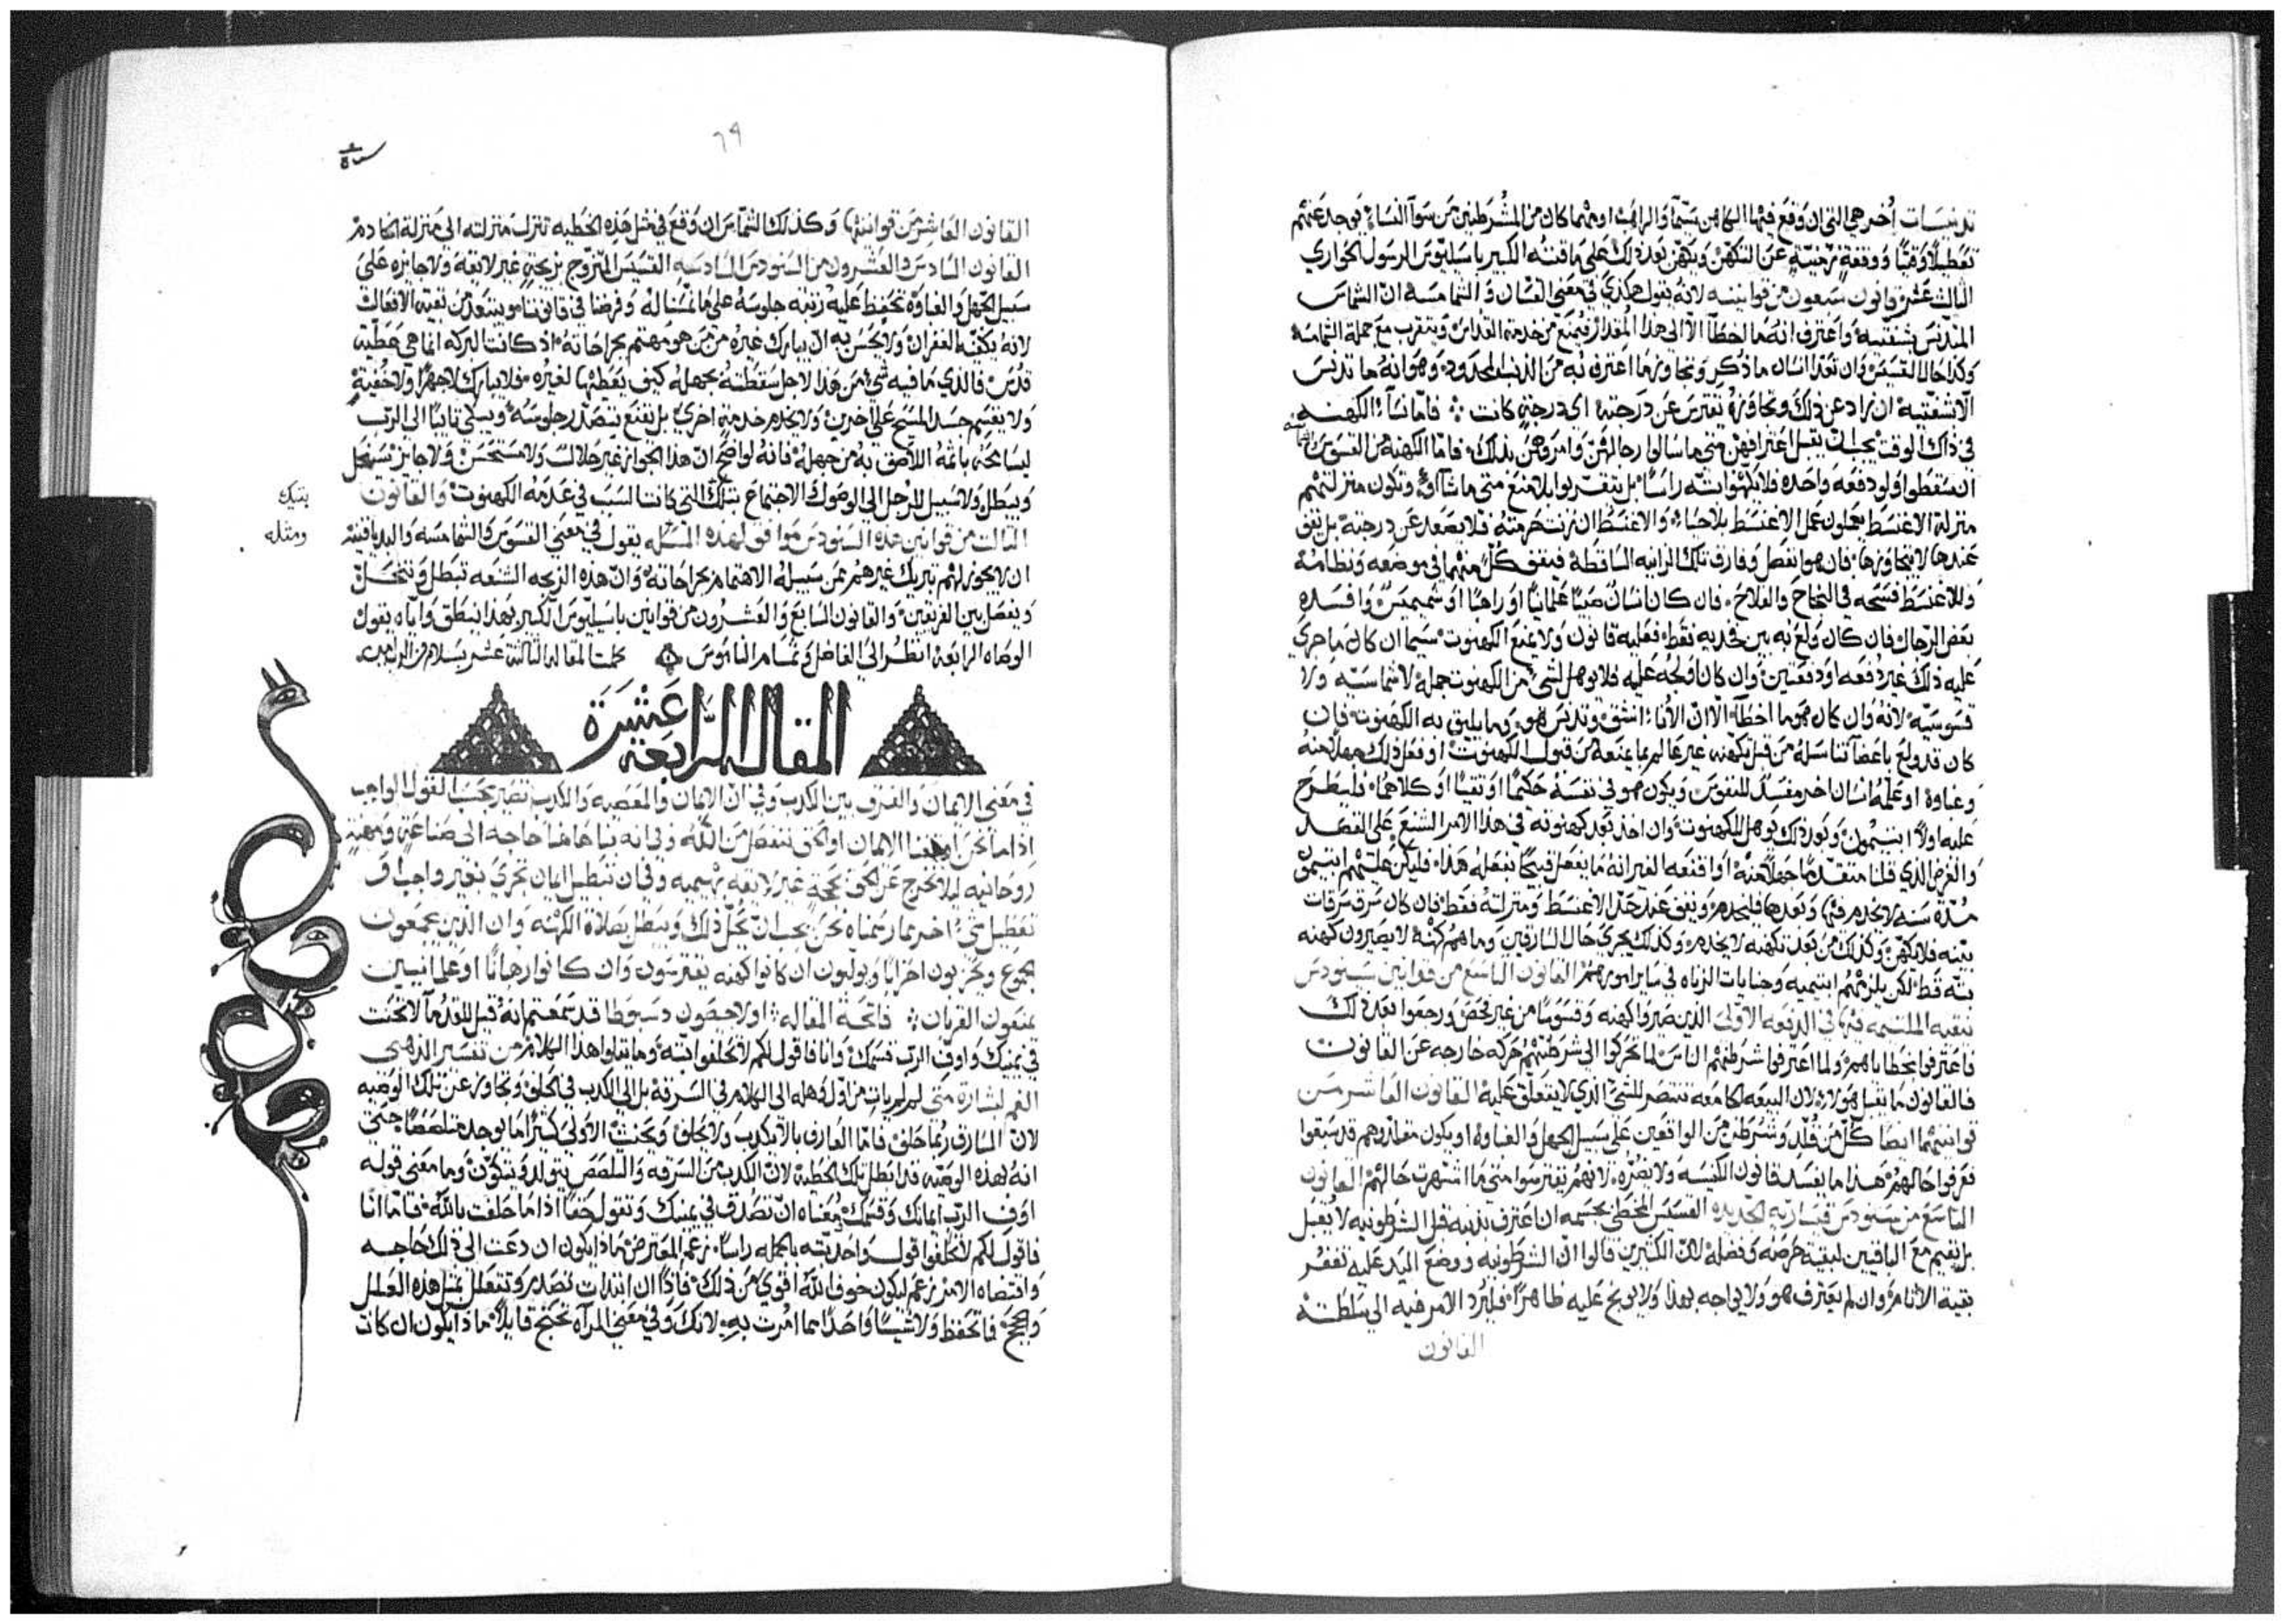 تدنيسات أخر هي التي ان وقع فيها الكاهن سيما والراهب او مهما كان من المشرطنين من سوآ النساء يوجد عنهم
تعطيلاً وقتياً ووقفة عن التكهن ويكهن بعد ذلك على ما قننه الكبير باسيليوس الرسول الحواري
الثالث عشر قانون سبعون من قوانينه لانه يقول هكذي في معنى القسان والشمامسه ان الشماس
المتدنس بشفتيه واعترف انه ما اخطا الا الى هذا المقدار فيمنع من خدمة القداس ويتقرب مع جملة الشمامسه
وكذا حال القسيس وان تعدا انسان ما ذكر وتجاوز ما اعترف به من الذنب المحدود وهو انه ما تدنس
الا شفتيه ان زاد عن ذلك وتجاوزه تفترس عن درجته اي درجة كانت فاما نسآء الكهنه
في ذاك الوقت يجب ان يقبل اعترافهن متى ما سالوا رجالهن وامروهن بذلك فاما الكهنه من القسوس
ان سقطوا ولو دفعه واحده فلا يكهنوا بته راساً بل يتقربوا بلا منع متى ما شاآوا وتكون منزلتهم
منزلة الاغنسط يعملون عمل الاغنسط بلا حيا والاغنسط ان زنت حرمته فلا يصعد عن درجته بل يقف
عندها لا يتجاوزها فان هو انفصل وفارق تلك الزانيه الساقطة فيقف كل منهما في موضعه ونظامه
وللاغنسط فسحه في النجاح والفلاح فان كان انسان صبيا علمانيا او راهبا او شميميس وافسده
بعض الرجال فان كان ولغ به بين فخديه فقط فعليه قانون ولا يمنع الكهنوت سيما ان كان ما جري
عليه ذلك غير دفعه او دفعتين وان كان اولجه عليه فلا يوهل لشي من الكهنوت جمله لا شماسيه ولا
قسوسيه لانه وان كان هو ما اخطا الا ان الانآء انشق وتدنس هو وما يليق به الكهنوت فان
كان قد ولغ باعضآ تناسله من قبل تكهنه غير عالم بما يمنعه من قبول الكهنوت او فعل ذلك جهلا منه
وغباوة او علمه انسان اخر مفسد للنفوس ويكون هو في نفسه حكيما او تقيا او كلاهما فليطرح
عليه اولا ابتيمون وبعد ذلك يوهل للكهنوت وان اخذ بعد كهنوته في هذا الامر الشنع على القصد
والغرض الذي قلنا متقدما جهلا منه او اقنعه الغير انه ما يفعل قبيحاً بفعله هذا فليكن عليهم ابتيمون
مدة سنه لا يخدم فيها وبعدها فليخدم ويقف عند حد الاغنسط ومنزلته فقط فان كان سرق سرقات
بينه فلا يكهن وكذلك من بعد تكهنه لا يخدم وكذلك يجري حال السارقين وما هم كهنة لا يصيرون كهنه
بته قط لكن يلزمهم ابتيميه وجنايات الزناه في ساير امورهم القانون التاسع من قوانين سينودس
نيقيه الملتيمه فيها في الدفعه الاولى الذين صيروا كهنه وقسوسا من غير فحص ورجعوا بعد ذلك
فاعترفوا بخطاياهم ولما اعترفوا شرطنهم الناس لما تحركوا الى شرطنتهم حركه خارجه عن القانون
فالقانون ما يقبل هولاء لان البيعه الجامعه تنتصر للشي الذي لا يتعلق عليه القانون العاشر من
قوانينهما ايضا كل من قُلد وشرطن من الواقعين على سبيل الجهل والغباوه او يكون مقلدوهم قد سبقوا
فعرفوا حالهم هذا ما يفسد قانون الكنيسه ولا يضره لانهم يفترسوا متى ما اشتهرت حالهم القانون
التاسع من سينودس قيساريه الجديده القسيس المخطي بجسمه ان اعترف بذنبه قبل الشرطونيه لا يقبل
بل يقيم مع الباقين لبقية حرصه وفضله لان الكثيرين قالوا ان الشرطونيه ووضع اليد عليه تغفر
بقية الاثام وان لم يعترف هو ولا يواجه بهذا ولا يوبخ عليه ظاهراً فليرد الامر فيه الى سلطته
القانون
٦٩
القانون العاشر من قوانينها وكذلك الشماس ان وقع في مثل هذه الخطيه تنزل منزلته الى منزلة الخادم
القانون السادس والعشرون من السنودس السادسه القسيس المتزوج بزيجة غير لايقه ولا جايزه على
سبيل الجهل والغباوه تحفظ عليه رتبه جلوسه على ما تمثناله وفرضنا في قانوننا ويبتعد من بقية الافعال
لانه يكفيه الغفران ولا يحسن به ان يبارك غيره من من هو مهتم بجراحاته اذ كانت البركه انما هي عطية
قدس فالذي ما فيه شي من هذا لاجل سقطته بجهله كيف يعطها لغيره فلا يبارك لا جهرا ولا خفية
ولا يقسم جسد المسيح على اخرين ولا يخدم خدمة اخري بل يقنع بتصدر جلوسه ويبكي تايبا الى الرب
ليسامحه باثمه اللاصق به من جهله فانه لواضح ان هذا الجواز غير حلال ولا مستحسن ولا جايز سينحل
ويبطل ولا سبيل للرجل الى الوصول الى الاجتماع بتلك التي كانت السبب في عدمه الكهنوت والقانون
بتيك
ومثله
الثالث من قوانين هذه السنودس موافق لهذه المسله يقول في معنى القسوس والشمامسه والابديافنيه
ان لا يجوز لهم تبريك غيرهم ممن سبيله الاهتمام بجراحاته وان هذه الزيجه الشنعه تبطل وتنحل
ويفصل بين الفريقين والقانون السابع والعشرون من قوانين باسيليوس الكبير بهذا ينطق واياه يقول
الوصاه الرابعة انظر الى الفاضل وتمام الناموس كملت المقاله الثالثة عشر بسلام من الرب امين
المقالة الرابعة عشرة
في معنى الايمان والفرق بين الكذب وفي ان الايمان والمعصيه والكذب تصير بحسب القول الواجب
اذا ما نحن اوقفنا الايمان او لكي ننفصل من الله وفي انه بنا هاهنا حاجه الى صناعة ومهنة
روحانيه ليلا نخرج عن الحق بحجة غير لايقه بهيميه وفي ان تبطيل ايمان تجري بغير واجب او
تعطيل شي اخر مما رسمناه نحن يجب ان نحل ذلك ويبطل بصلاة الكهنه وان الذين يجمعون
بجموع ويحزبون احزابا ويولبون ان كانوا كهنه يفترسون وان كانوا رهبانا او علمانيين
يمنعون القربان فاتحة المقاله اولا حصون دسبوطا قد سمعتم انه قيل للقدمآ لا تحنث
في يمينك واوف الرب قسمك وانا فاقول لكم لا تحلفوا بته وما يتلوا هذا الكلام من تفسير الذهبي
الفم لبشارة متى لم لم يات من اول وهله الى الكلام في السرقة بل الى الكذب في الحلف وتجاوز عن تلك الوصيه
لان السارق ربما حلف فاما العارف بالا يكذب ولا يحلف ويحنث الاولى كثيرا ما يوجد متلصصا حتى
انه لهذه الوصيه قد ابطل تلك الخطية لان الكذب من السرقه والتلصص يتولد ويتكون وما معنى قوله
اوف الرب ايمانك وقسمك معناه ان تصدق في يمينك وتقول حقا اذا ما حلفت بالله فاما انا
فاقول لكم لا تحلفوا قولا واحدا بته بالجمله راسا زعم المعترض ماذا يكون ان دعت الى ذلك حاجه
واقتضاه الامر نزعم ليكون خوف الله اقوي من ذلك فاذا ان ابتدات تصدر وتتعلل بمثل هذه العلل
والحجج فما تحفظ ولا شيئا واحدا مما امرت به لانك وفي معنى المرآه تحتج قايلا ماذا يكون ان كانت